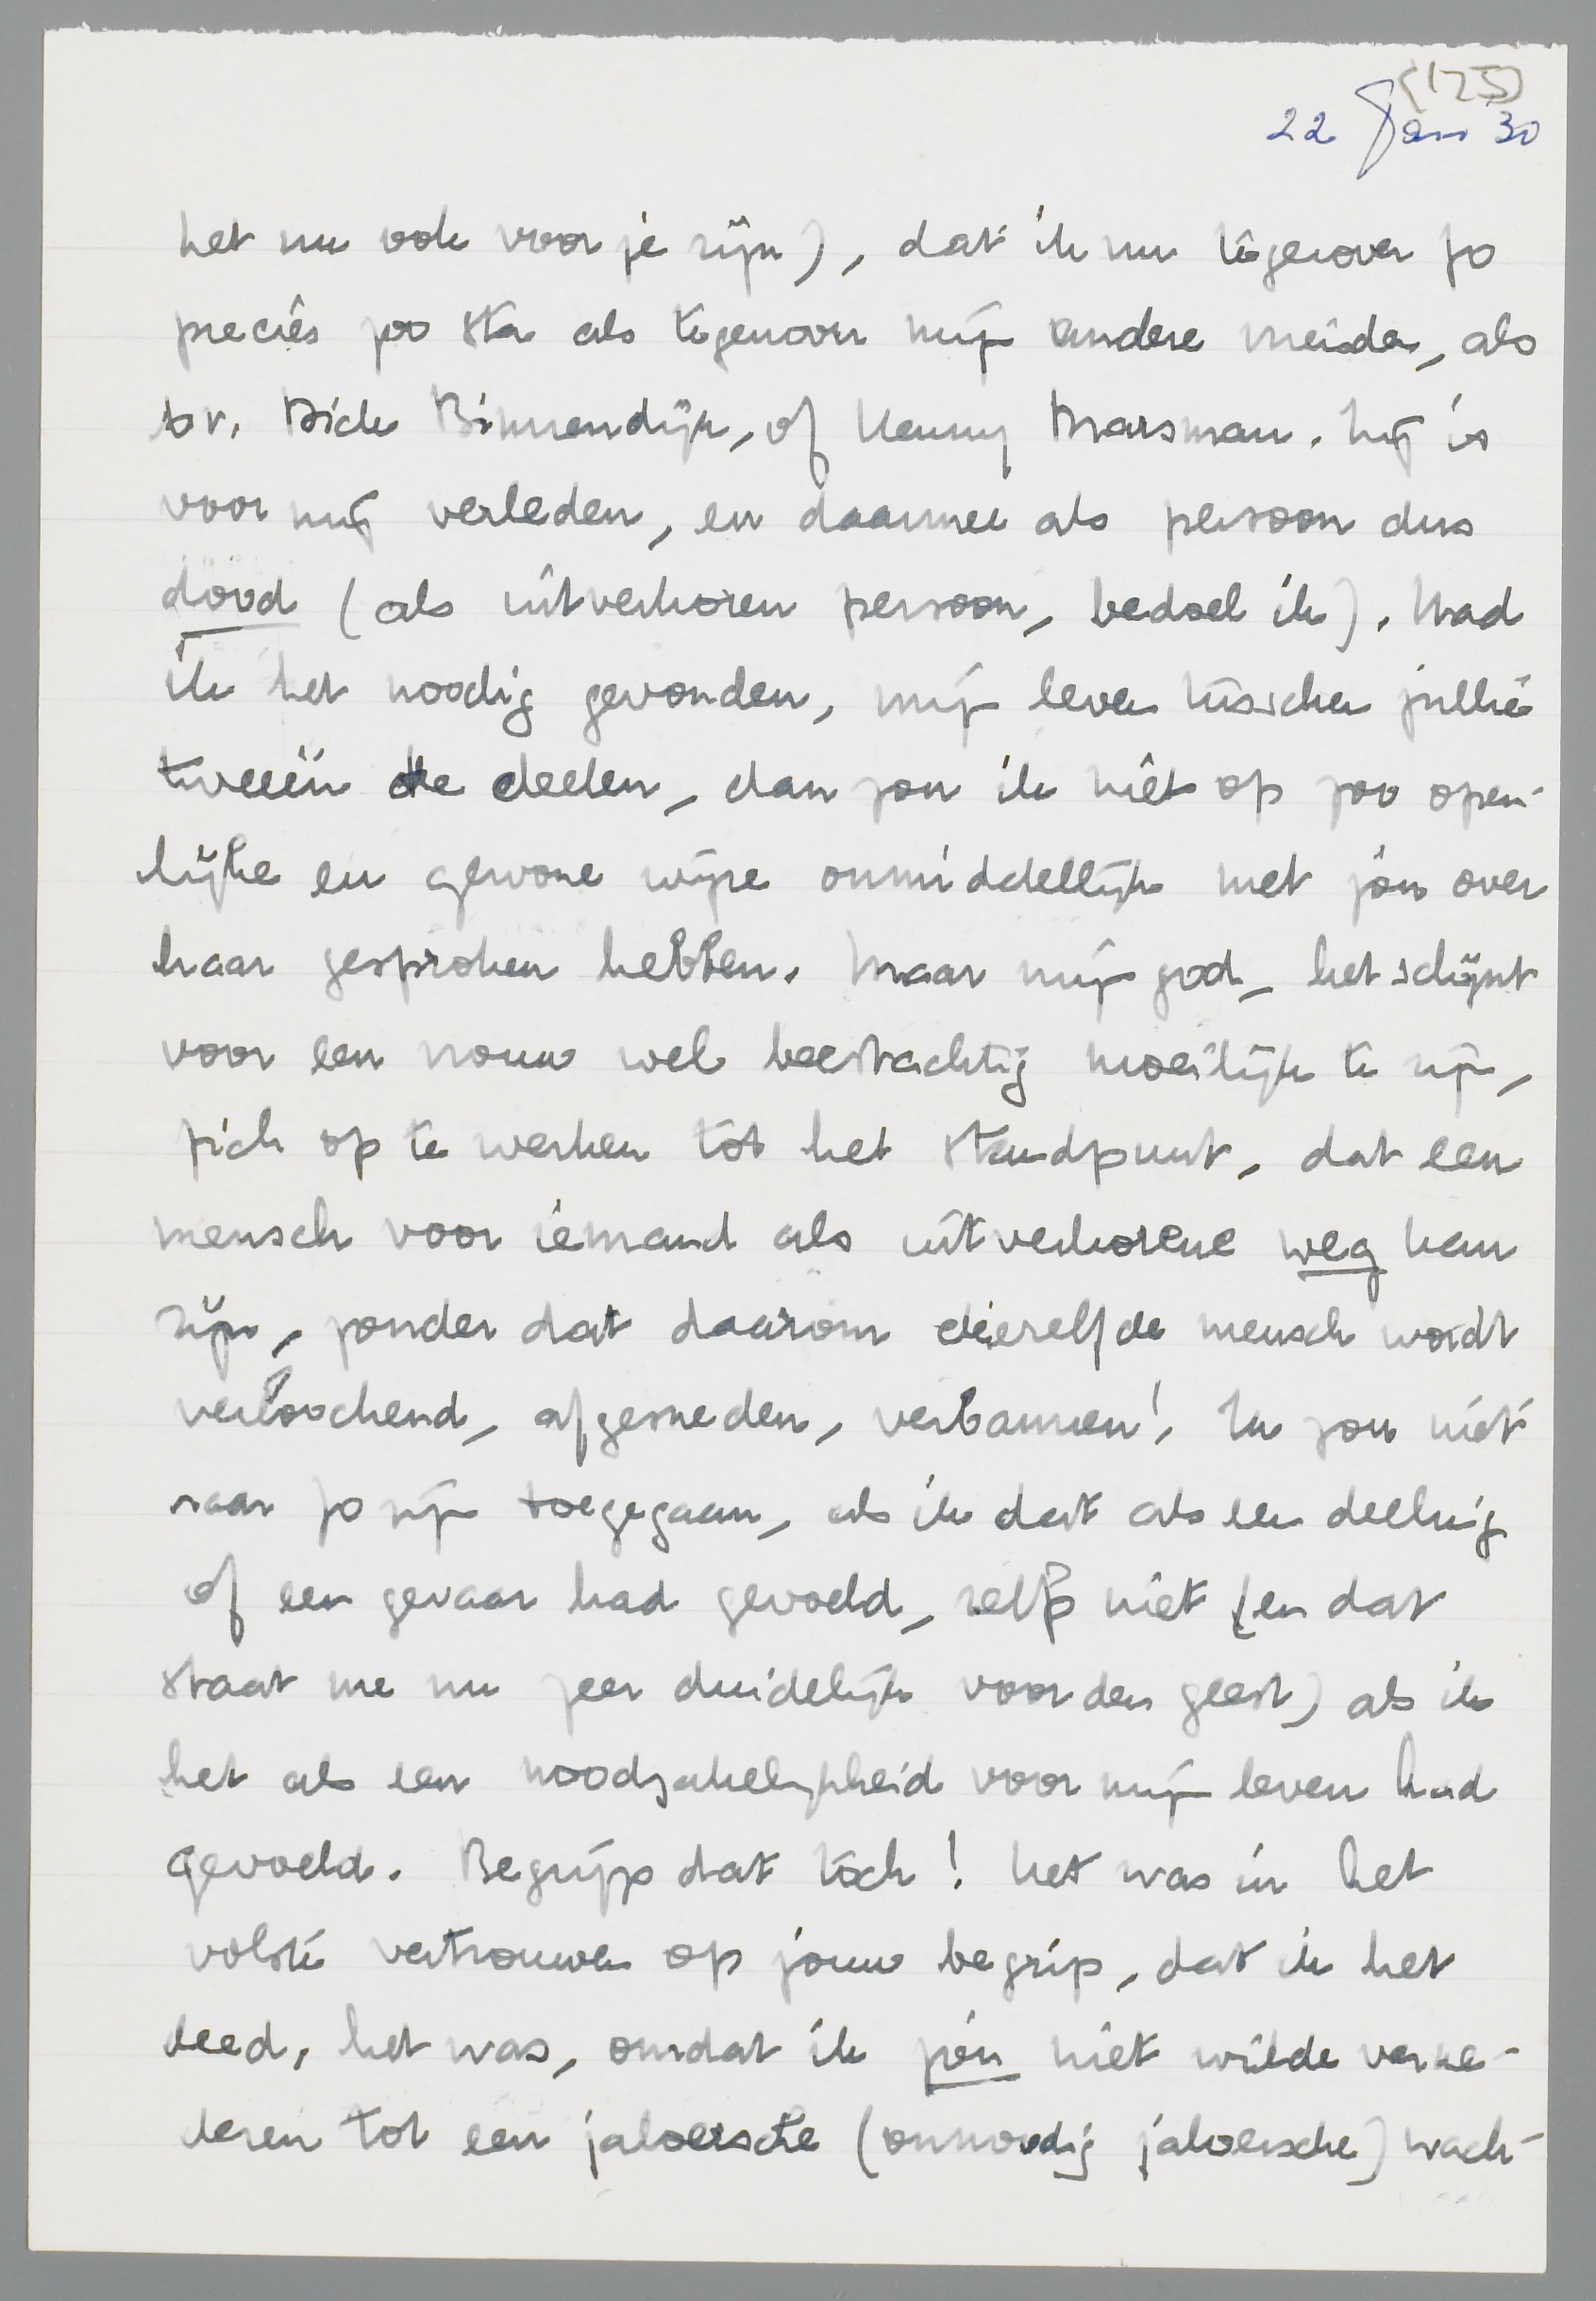 (125)
22 Jan '30
het nu ook voor je zijn), dat ik nu tegenover Jo
precies zoo sta als tegenover mijn andere vrienden, als
bv. Dick Binnendijk, of Henny Marsman. Hij is
voor mij verleden, en daarmee als persoon dus
dood (als uitverkoren persoon, bedoel ik). Had
ik het noodig gevonden, mijn leven tusschen jullie
tweeën te deelen, dan zou ik niet op zoo open-
lijke en gewone wijze onmiddellijk met jou over
haar gesproken hebben. Maar mijn god, het schijnt
voor een vrouw wel beestachtig moeilijk te zijn,
zich op te werken tot het standpunt, dat een
mensch voor iemand als uitverkorene weg kan
zijn, zonder dat daarom diezelfde mensch wordt
verloochend, afgesneden, verbannen! Ik zou niet
naar Jo zijn toegegaan, als ik dat als een deeling
of een gevaar had gevoeld, zelfs niet (en dat
staat me nu zeer duidelijk voor den geest) als ik
het als een noodzakelijkheid voor mijn leven had
gevoeld. Begrijp dat toch! Het was in het
volste vertrouwen op jouw begrip, dat ik het
deed, het was, omdat ik jóu niet wilde verne-
deren tot een jaloersche (onnoodig jaloersche) wach-